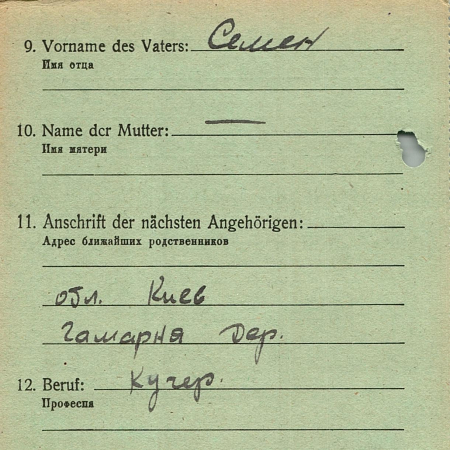 9. Vorname des Vaters: Семен
Имя отца
10. Name der Mutter: —
Имя матери
11. Anschrift der nächsten Angehörigen:
Адрес ближайших родственников
обл. Киев
Гамарня Дер.
12. Beruf: Кучер.
Професия